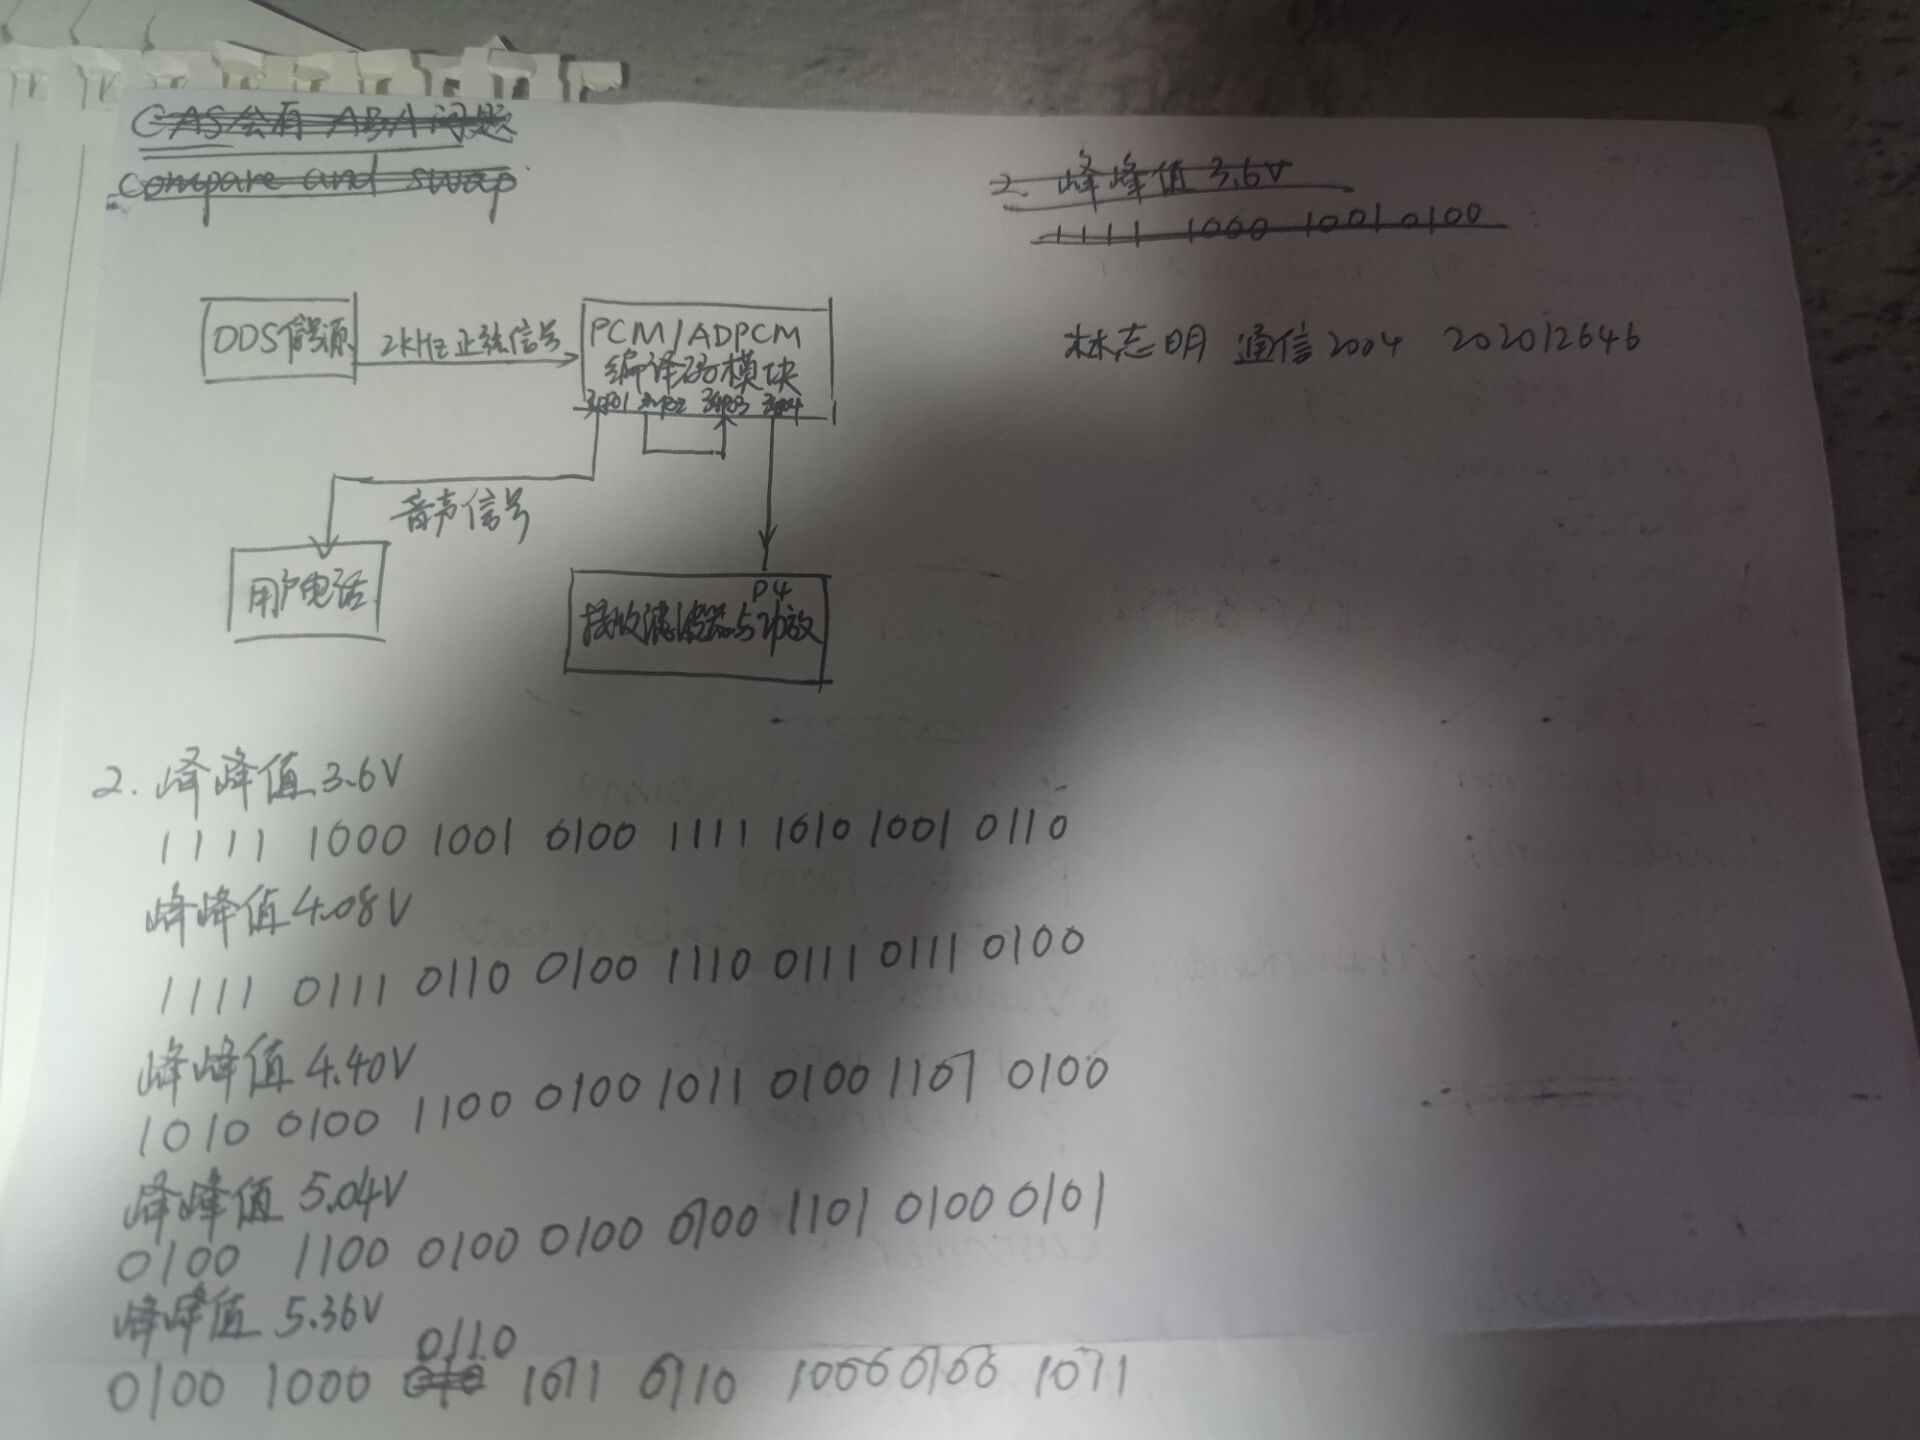 CAS会有 ABA问题
compare and swap
2. 峰峰值 3.6V
1111 1000 1001 0100
DDS信号源
2kHz正弦信号
PCM/ADPCM
编译码模块
34P01 34P02 34P03 34P04
林志明 通信2004 202012646
音声信号
用户电话
P4
接收滤波器与功放
2. 峰峰值 3.6V
1111 1000 1001 0100 1111 1010 1001 0110
峰峰值 4.08V
1111 0111 0110 0100 1110 0111 0111 0100
峰峰值 4.40V
1010 0100 1100 0100 1011 0100 1101 0100
峰峰值 5.04V
0100 1100 0100 0100 0100 1101 0100 0101
峰峰值 5.36V
0110
0100 1000 1011 0110 1000 0100 1011